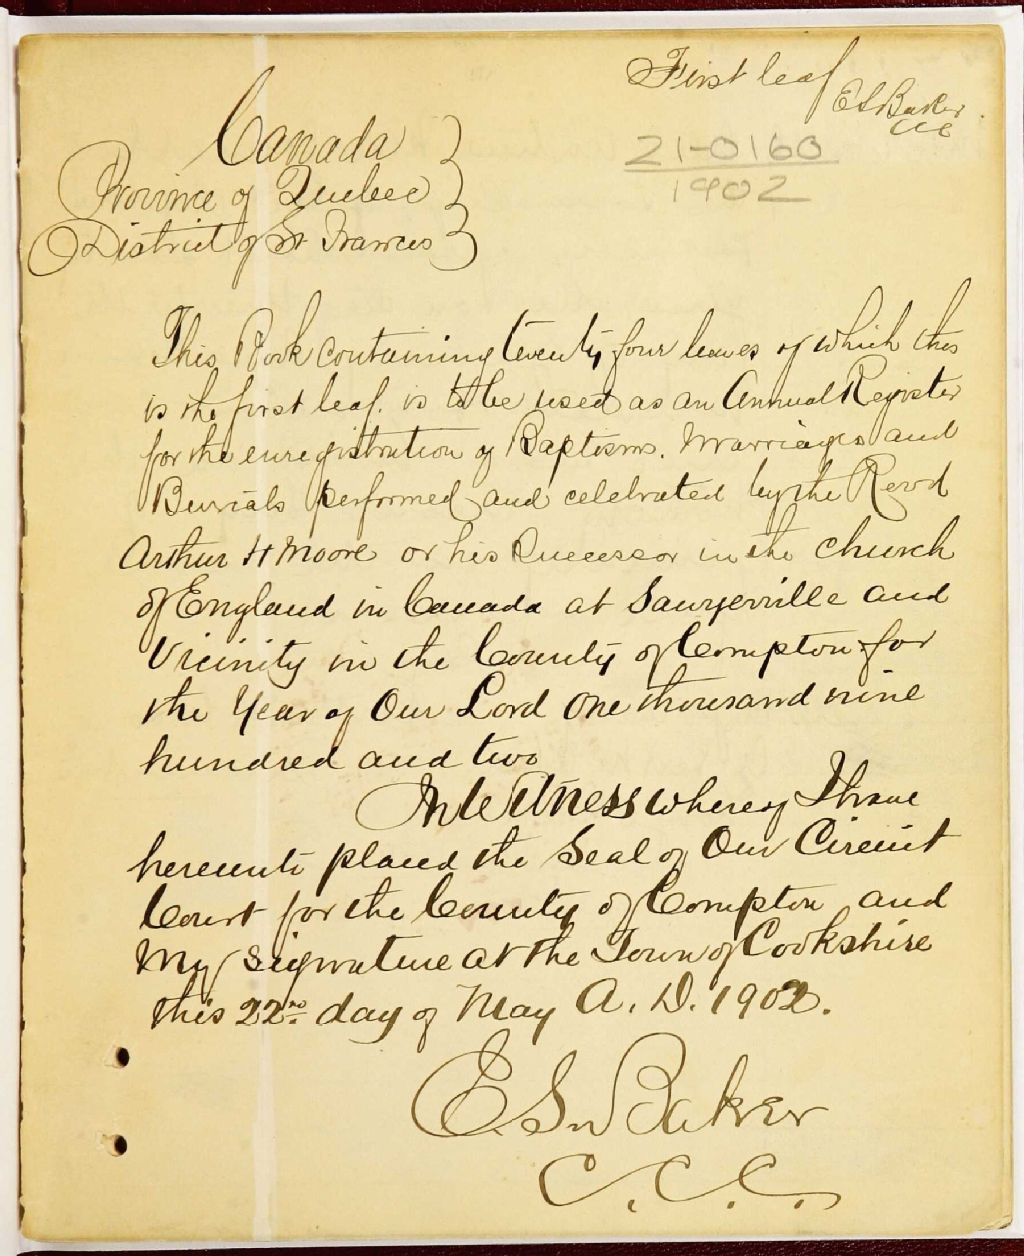 First leaf
E S Baker
CCC
21-0160
1902
Canada
Province of Quebec
District of St Francis
This Book containing twenty four leaves of which this
is the first leaf. is to be used as an Annual Register
for the enregistration of Baptisms. Marriages and
Burials performed and celebrated by the Revd
Arthur H Moore or his Successor in the church
of England in Canada at Sawyerville and
Vicinity in the County of Compton for
the Year of Our Lord One thousand nine
hundred and two
In Witness whereof I have
hereunto placed the Seal of Our Circuit
Court for the County of Compton and
My signature at the Town of Cookshire
this 22nd day of May A. D. 1902.
E. S. Baker
C. C. C.